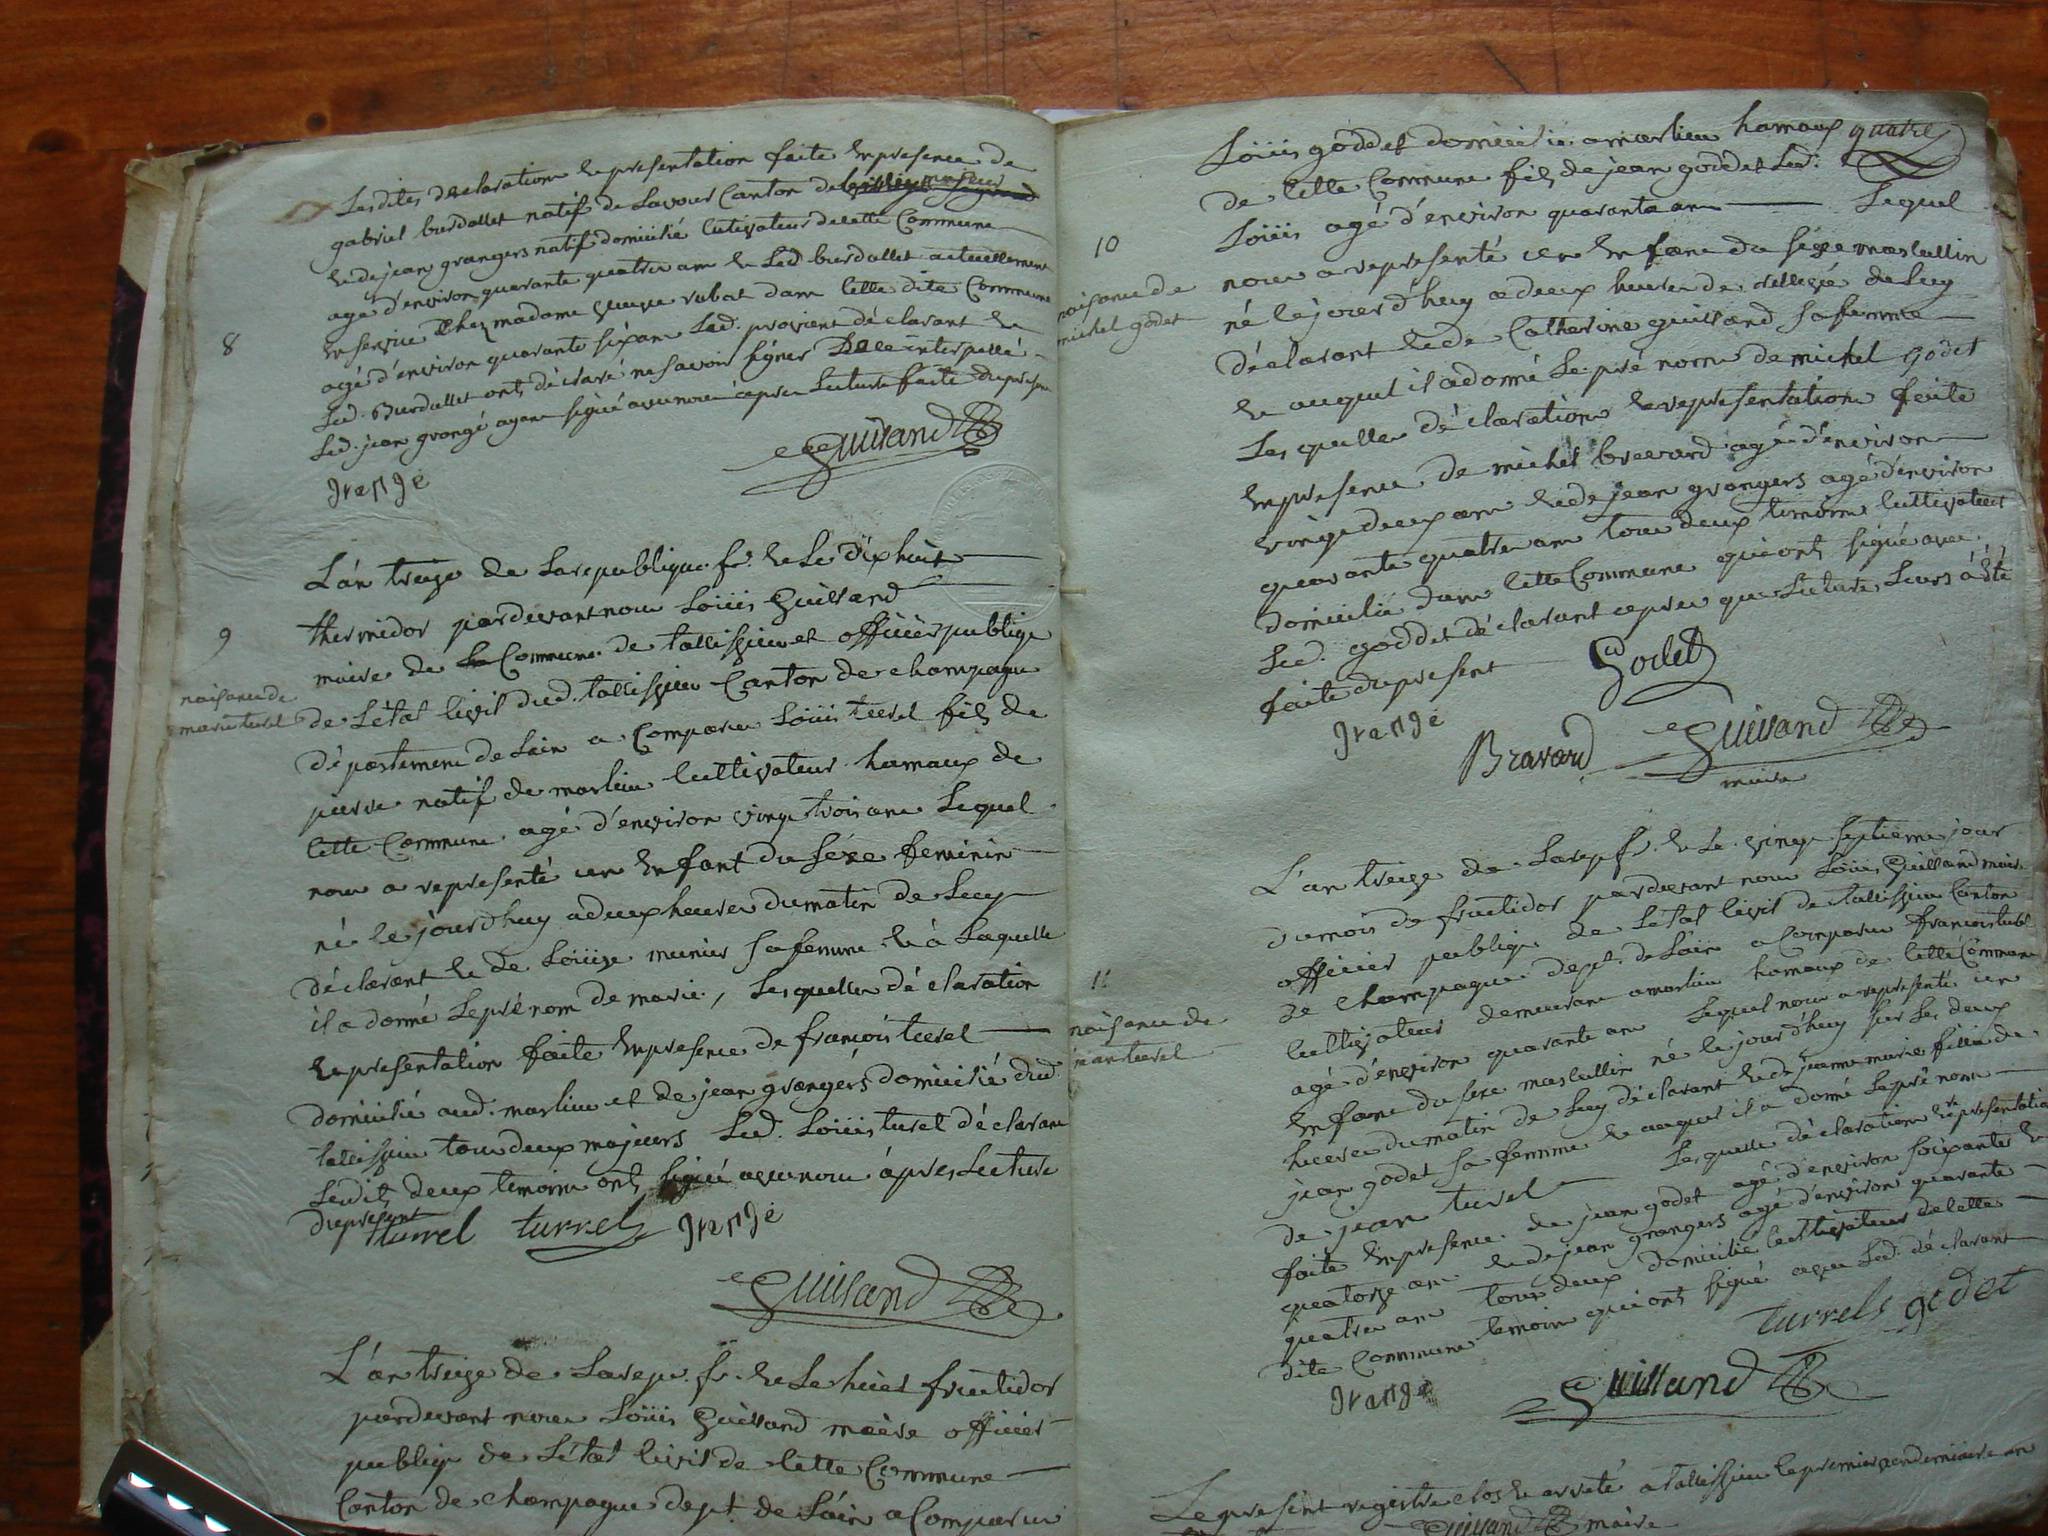 Lesdites déclaration & presentation faite en presence de
gabriel burdallet natif de Lavour Canton de majeur
& de jean grangers natif domicilié Cutivateur de cette Commune
agé d'environ quarante quatre ans & Led burdallet actuellement
en service Chez madame rubat dans cette dite Commune
8
agé d'environ quarante six ans Led. present déclarant &
Led. Burdallet onts déclaré ne savoir signer de ce interpellé
Led. jean grangé ayant signé avec nous après Lecture faite du present
Guilland
grangé
L'an treize de La republique fr. & Le dix huit
thermidor pardevant nous Loüis Guilland
9
maire de la Commune de tallissieu et officier publique
naisance de
marie turel
de L'état Civil dud. tallissieu Canton de champagne
département de Lain a Comparu Loüis turel fils de
pierre natif de marlieu Cultivateur hamaux de
Cette Commune agé d'environ vingt trois ans Lequel
nous a representé un Enfant du séxe feminin
né le jourd'huy a deux heures du matin de Luy
déclarant & de Loüise munier sa femme & à Laquelle
il a donné Le pré nom de marie, Lesquelles déclaration
& presentation faite en presence de francois turel
domicilié aud. marlieu et de jean grangérs domicilié dud.
tallissieu tous deux majeurs Led. Loüis turel déclarant
Lesdits deux temoins onts signé avec nous après Lecture
du présent
turrel turrels grangé
Guilland
L'an treize de La repu. fr. & Le huit fructidor
pardevant nous Loüis Guilland maire officier
publiq de L'état Civil de Cette Commune
Canton de champagne dept. de Lain a Comparu
Loüis goddet domicilié a marlieu hamaux quatre
de Cette Commune fils de jean goddet Led.
Loüis agé d'environ quarante ans Lequel
10
naisance de
michel godet
nous a representé un Enfant du séxe masculin
né le jourd'huy a deux heures de relevée de Luy
déclarant & de Catherine guilland sa femme
& auquel il a donné Le pré nom de michel godet
Lesquelles déclaration & representation faite
en presence de michel bravard agé d'environ
vingt deux ans & de jean grangers agé d'environ
quarante quatre ans tous deux temoins Cultivateurs
domicilié dans Cette Commune qui onts signé avec
Led. goddet déclarant apres que Lecture Leurs a été
faite du present
Godet
grangé
Bravard
Guilland
maire
L'an treize de La rep fr. & Le vingt septieme jour
du mois de fructidor pardevant nous Loüis Guilland maire
officier publique de L'état Civil de tallissieu Canton
de champagne dept. de Lain a Comparu francois turel
11
naisance de
jean turel
Cultivateur demeurant a marlieu hamaux de Cette Commune
agé d'environ quarante ans Lequel nous a representé un
Enfant du sexe masculin né le jourd'huy sur Les deux
heures du matin de Luy déclarant & de jeanne marie fillie de
jean godet sa femme & auquel il a donné Le pré nom
de jean turel Lesquelle déclaration & representation
faite en presence de jean godet agé d'environ soixante &
quatorze ans & de jean grangers agé d'environ quarante
quatre ans tous deux domicilié Cultivateur de Cette
dite Commune temoins qui onts signé avec Led. déclarant
turrels godet
grangé
Guilland
Le present registre Clos & arreté a tallissieu Le premier vendemiaire an
Guilland maire